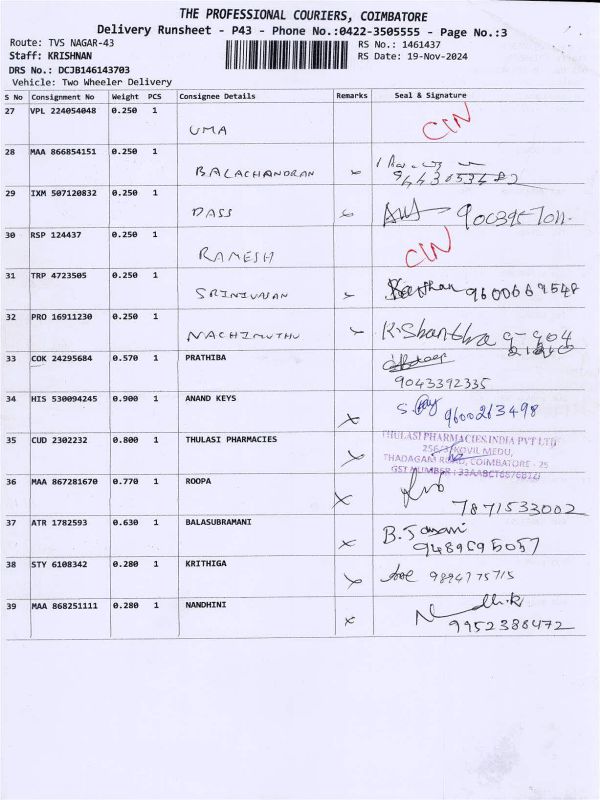 THE PROFESSIONAL COURIERS, COIMBATORE
Delivery Runsheet - P43 - Phone No.:0422-3505555 - Page No.:3
Route: TVS NAGAR-43 RS No.: 1461437
Staff: KRISHNAN RS Date: 19-Nov-2024
DRS No.: DCJB146143703
Vehicle: Two Wheeler Delivery
S No Consignment No Weight PCS Consignee Details Remarks Seal & Signature
27 VPL 224054048 0.250 1 UMA CIN
28 MAA 866854151 0.250 1 BALACHANDRAN
29 IXM 507120832 0.250 1 DASS
30 RSP 124437 0.250 1 RAMESH CIN
31 TRP 4723505 0.250 1 SRINIVASAN 9600669548
32 PRO 16911230 0.250 1 NACHIMUTHU K.Shantha
33 COK 24295684 0.570 1 PRATHIBA
9043392335
34 HIS 530094245 0.900 1 ANAND KEYS 9600263498
35 CUD 2302232 0.800 1 THULASI PHARMACIES THULASI PHARMACIES INDIA PVT LTD
KOVIL MEDU,
THADAGAM ROAD, COIMBATORE - 25
GST NUMBER
36 MAA 867281670 0.770 1 ROOPA
7871533002
37 ATR 1782593 0.630 1 BALASUBRAMANI
9489695057
38 STY 6108342 0.280 1 KRITHIGA 9894775715
39 MAA 868251111 0.280 1 NANDHINI
9952386472